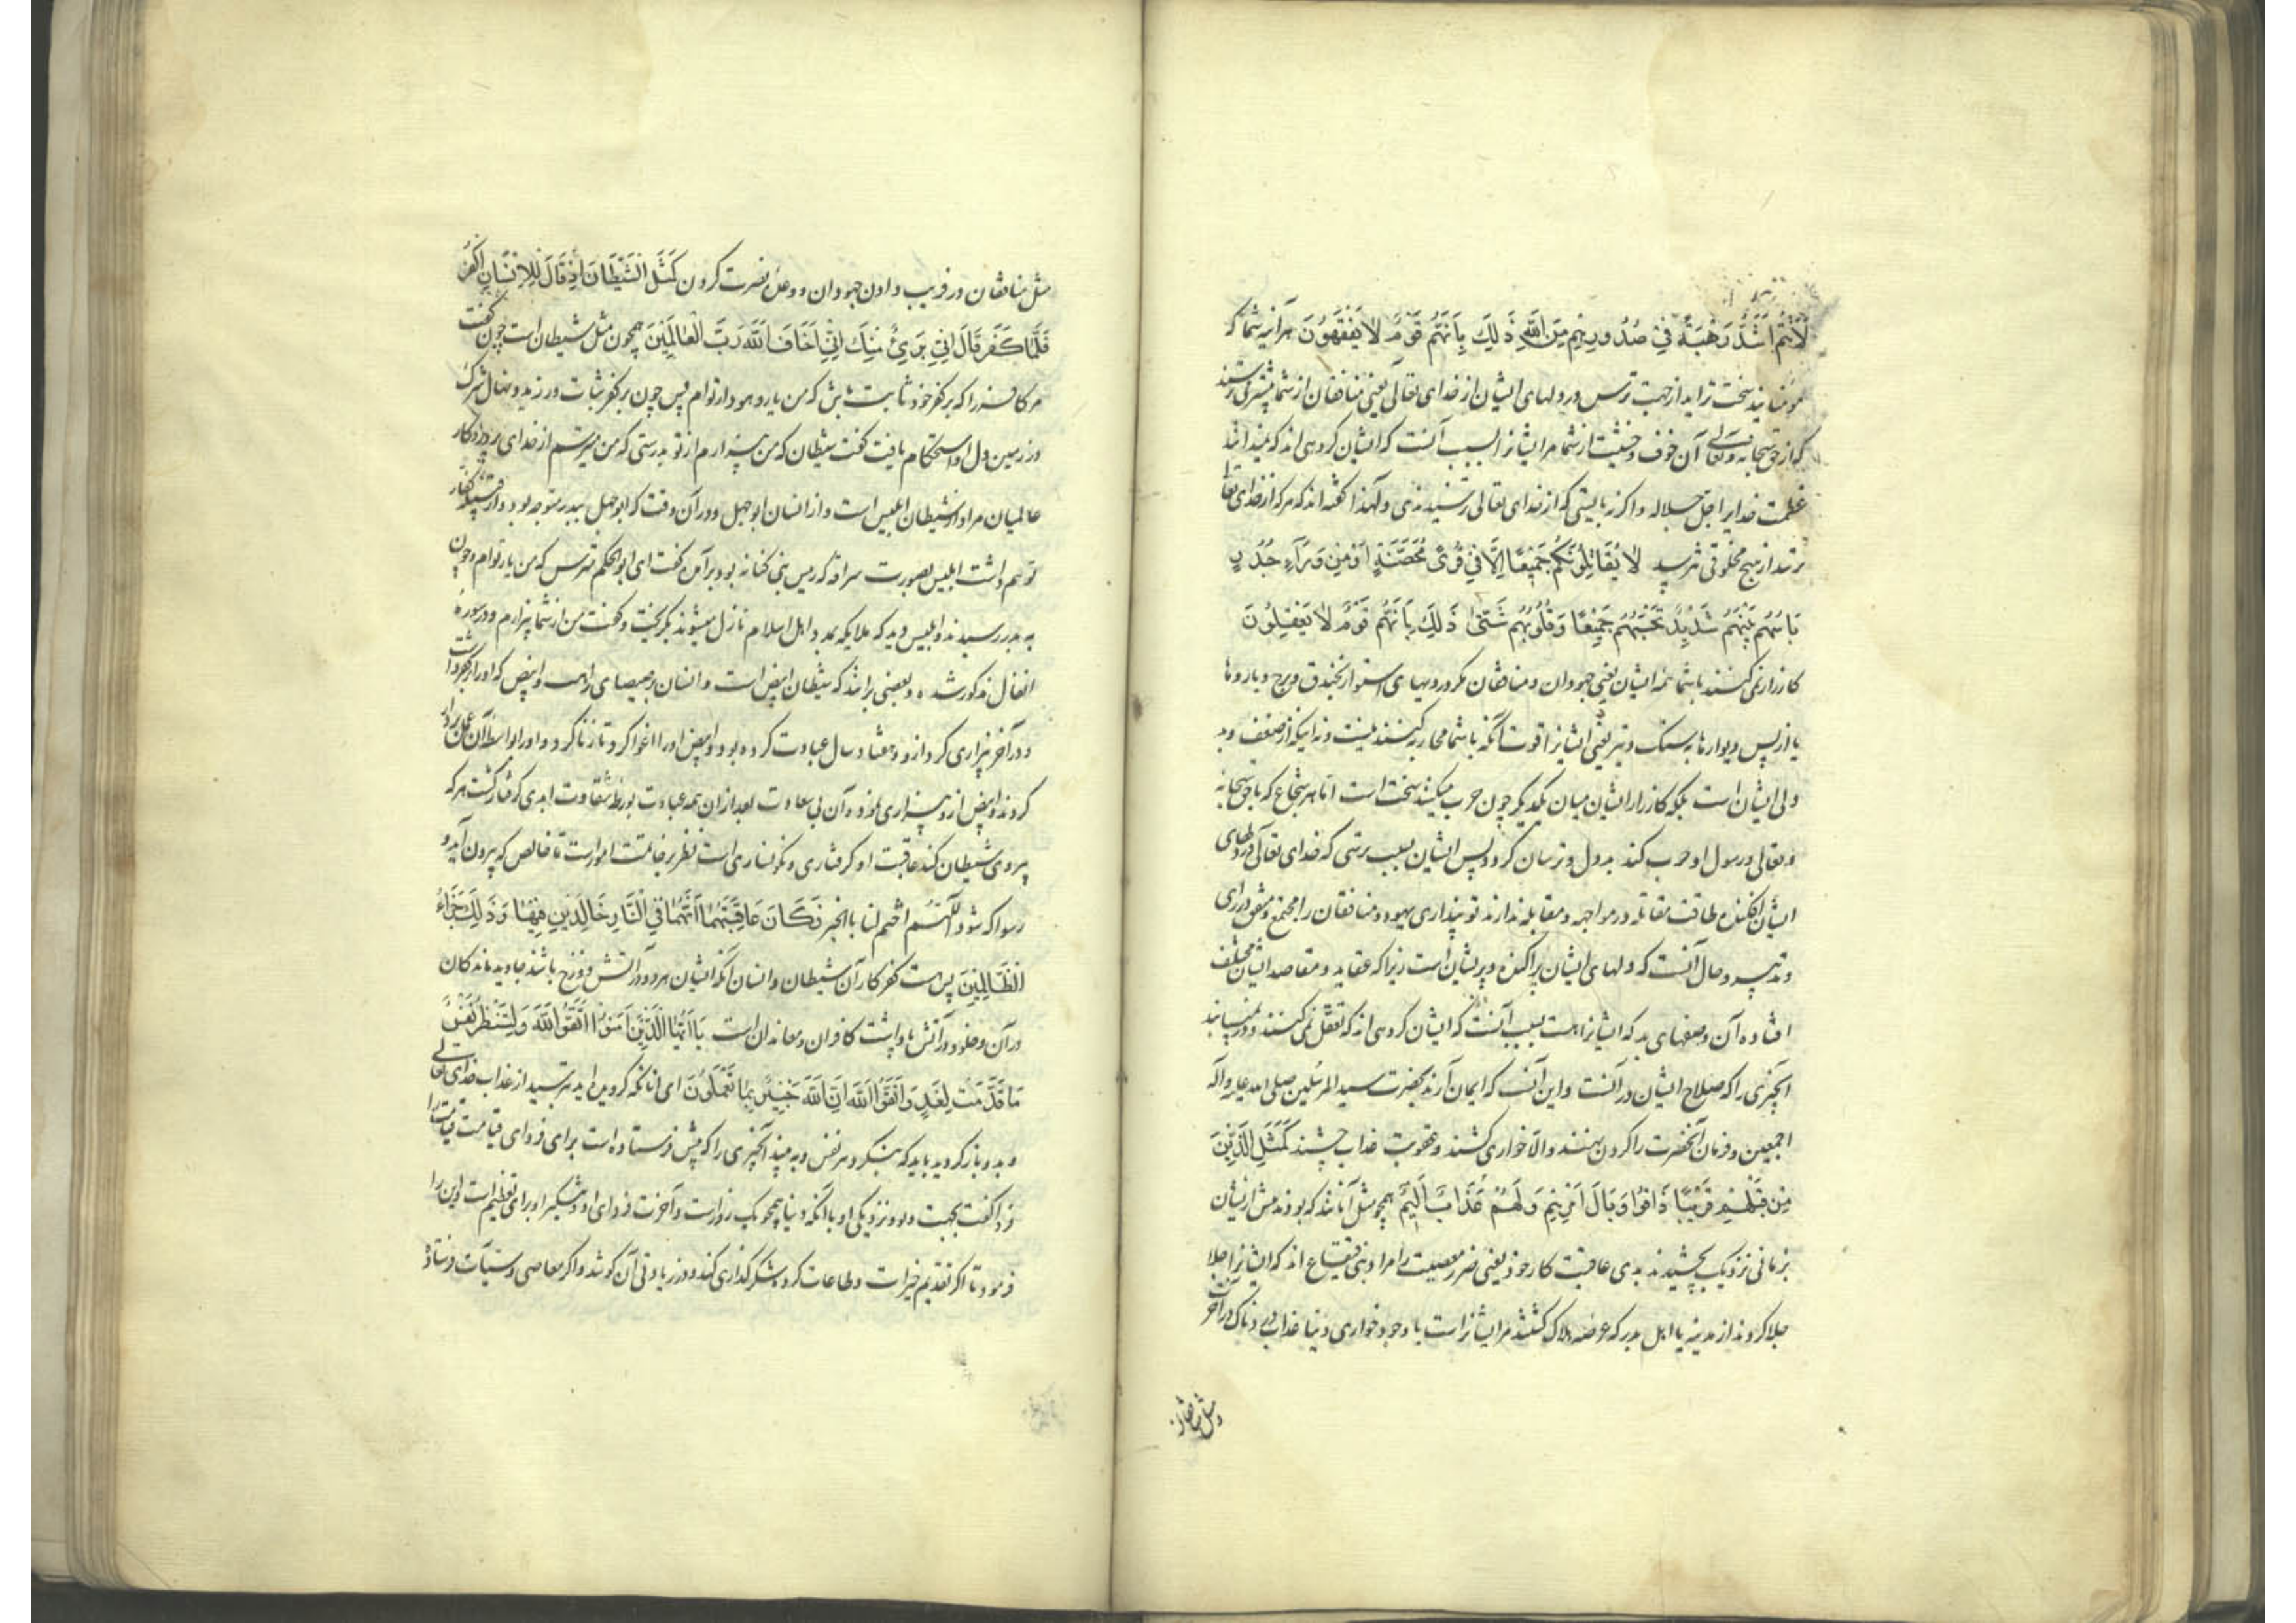 لَأَنْتُمْ أَشَدُّ رَهْبَةً فِي صُدُورِهِمْ مِنَ اللَّهِ ذَلِكَ بِأَنَّهُمْ قَوْمٌ لَا يَفْقَهُونَ هرآینه شما که
مؤمنانید سخت تراید از جهت ترس در دلهای ایشان از خدای تعالی یعنی منافقان از شما بیشتر می ترسند
که از حق سبحانه و تعالی آن خوف و خشیت از شما مر ایشانرا بسبب آنست که ایشان گروهی اند که نمیدانند
عظمت خدایرا جل جلاله و اگر نه بایستی که از خدای تعالی ترسیدندی و لهذا گفته اند که هر که از خدای تعالی
ترسد از هیچ مخلوقی نترسد لَا يُقَاتِلُونَكُمْ جَمِيعًا إِلَّا فِي قُرًى مُحَصَّنَةٍ أَوْ مِنْ وَرَاءِ جُدُرٍ
بَأْسُهُمْ بَيْنَهُمْ شَدِيدٌ تَحْسَبُهُمْ جَمِيعًا وَقُلُوبُهُمْ شَتَّى ذَلِكَ بِأَنَّهُمْ قَوْمٌ لَا يَعْقِلُونَ
کارزار نمی کنند با شما همه ایشان یعنی جهودان و منافقان مگر در دیهای استوار بخندق و برج و بارو ها
یا از پس دیوارها به سنگ و تیر یعنی ایشانرا قوت آنکه با شما محاربه کنند نیست و نه اینکه از ضعف و بد
دلی ایشان است بلکه کارزار ایشان میان یکدیگر چون حرب میکنند سخت است اما هر شجاع که با حق سبحانه
و تعالی و رسول او حرب کند بد دل و ترسان گردد پس ایشان بسبب ترسی که خدای تعالی در دلهای
ایشان افکنده طاقت مقاتله در مواجهه و مقابله ندارند تو پنداری یهود و منافقان را مجتمع و متفق در رای
و تدبیر و حال آنست که دلهای ایشان پراکنده و پریشان است زیرا که عقاید و مقاصد ایشان مختلف
افتاده آن وصفهای بد که ایشانراست بسبب آنست که ایشان گروهی اند که تعقل نمی کنند و در نمییابند
آنچیزی را که صلاح ایشان در آنست و این آنست که ایمان آرند بحضرت سید المرسلین صلی الله علیه وآله
اجمعین و فرمان آنحضرت را گردن نهند والا خواری کشند و عقوبت عذاب چشند كَمَثَلِ الَّذِينَ
مِنْ قَبْلِهِمْ قَرِيبًا ذَاقُوا وَبَالَ أَمْرِهِمْ وَلَهُمْ عَذَابٌ أَلِيمٌ همچو مثل آنانند که بودند پیش از ایشان
بزمانی نزدیک بچشیدند بدی عاقبت کار خود یعنی ضرر معصیت را مراد بنی قینقاع اند که ایشانرا جلا
جلا کردند از مدینه یا اهل بدر که عرضه هلاک گشتند مر ایشانراست با وجود خواری دنیا عذاب دردناک در آخرت
و مثل منافقان
مثل منافقان در فریب دادن جهودان و وعده نصرت کردن كَمَثَلِ الشَّيْطَانِ إِذْ قَالَ لِلْإِنْسَانِ اكْفُرْ
فَلَمَّا كَفَرَ قَالَ إِنِّي بَرِيءٌ مِنْكَ إِنِّي أَخَافُ اللَّهَ رَبَّ الْعَالَمِينَ همچون مثل شیطان است چون گفت
مر کافر را که بر کفر خود ثابت باش که من یار و هودار توام پس چون بر کفر ثبات ورزید و نهال شرک
در زمین دل او استحکام یافت گفت شیطان که من بیزارم از تو بدرستی که من میترسم از خدای پروردگار
عالمیان مراد از شیطان ابلیس است و از انسان ابو جهل و در آن وقت که ابو جهل ببدر متوجه بود و از کفار
توهم داشت ابلیس بصورت سراقه که رییس بنی کنانه بود برآمده گفت ای ابو الحکم مترس که من یار توام و چون
به بدر رسیدند و ابلیس دید که ملایکه بمدد اهل اسلام نازل میشوند بگریخت و گفت من از شما بیزارم و در سوره
انفال مذکور شده و بعضی برانند که شیطان ابیض است و انسان برصیصای راهب و ابیض که او را بر کفر داشت
و در آخر بیزاری کرد از و و هفتاد سال عبادت کرده بود و ابیض او را اغوا کرد تا زنا کرد و او را بواسطه آن عمل بر دار
کردند و ابیض از و بیزاری نمود و آن بی سعادت بعد از ان همه عبادت بورطه شقاوت ابدی گرفتار گشت هر که
پیروی شیطان کند عاقبت او گرفتاری و نگونساری است نظر بر خاتمت امور است تا خالص که بیرون آید و
رسوا که شود اللهم اختم لنا بالخیر فَكَانَ عَاقِبَتَهُمَا أَنَّهُمَا فِي النَّارِ خَالِدَيْنِ فِيهَا وَذَلِكَ جَزَاءُ
الظَّالِمِينَ پس هست کفر کار آن شیطان و انسان آنکه ایشان هر دو در آتش دوزخ باشند جاوید ماندگان
در آن و خلود در آتش پاداشت کافران و معاندان است يَا أَيُّهَا الَّذِينَ آمَنُوا اتَّقُوا اللَّهَ وَلْتَنْظُرْ نَفْسٌ
مَا قَدَّمَتْ لِغَدٍ وَاتَّقُوا اللَّهَ إِنَّ اللَّهَ خَبِيرٌ بِمَا تَعْمَلُونَ ای آنانکه گرویده اید بترسید از عذاب خدای تعالی
و بدو باز گردید باید که بنگرد هر نفس و به بیند آنچیزی را که پیش فرستاده است برای فردای قیامت قیامت را
فردا گفت بجهت دنو و نزدیکی او با آنکه دنیا همچو یک روز است و آخرت فردای او و تنکیر او برای تعظیم است این را
فرمود تا اگر تقدیم خیرات و طاعات کرد شکر گذاری کند و در زیادتی آن کوشد و اگر معاصی و سیآت فرستاده